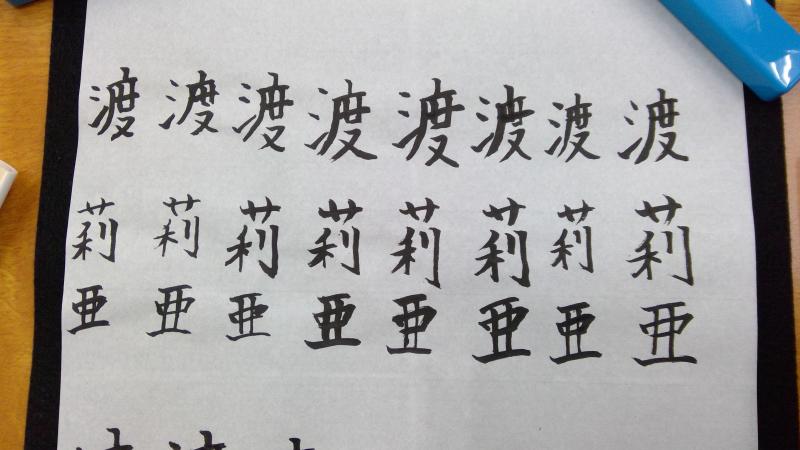 渡莉亜
渡莉亜
渡莉亜
渡莉亜
渡莉亜
渡莉亜
渡莉亜
渡莉亜